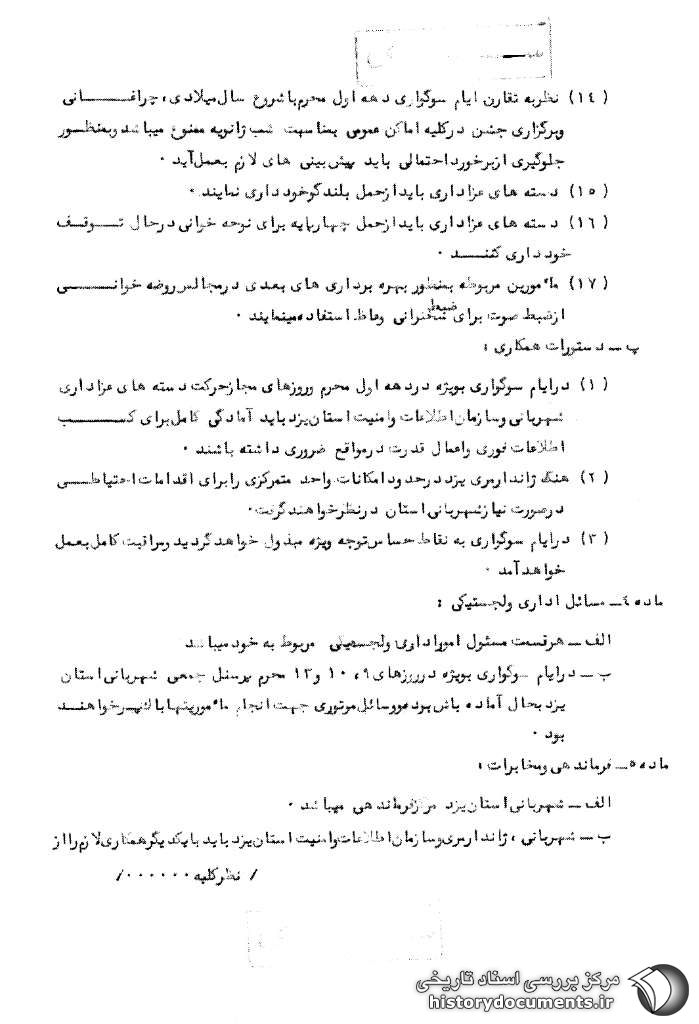 (١٤) نظربه تقارن ایام سوگواری دهه اول محرم با شروع سال میلادی ، چراغـــــانی
وبرگزاری جشن درکلیه اماکن عمومی بمناسبت شب ژانویه ممنوع میباشد وبمنظـور
جلوگیری ازبرخورد احتمالی باید پیش بینی های لازم بعمل آید .
(١٥) دسته های عزاداری باید ازحمل بلندگوخودداری نمایند .
(١٦) دسته های عزاداری باید ازحمل چهارپایه برای نوحه خوانی درحال تـــوقــف
خودداری کننـــد .
(١٧) مأمورین مربوطه بمنظور بهره برداری های بعدی درمجالس روضه خوانــــی
ازضبط صوت برای ضبط سخنرانی وعاظ استفاده مینمایند .
پ ــ دستورات همکاری :
(١) درایام سوگواری بویژه دردهه اول محرم وروزهای مجازحرکت دسته های عزاداری
شهربانی وسازمان اطلاعات وامنیت استان یزد باید آمادگی کامل برای کســـــب
اطلاعات فوری واعمال قدرت درمواقع ضروری داشته باشند .
(٢) هنگ ژاندارمری یزد درحدود امکانات واحد متمرکزی رابرای اقدامات احتیاطـــی
درصورت نیازشهربانی استان درنظرخواهند گرفت.
(٣) درایام سوگواری به نقاط حساس توجه ویژه مبذول خواهد گردید ومراقبت کامل بعمل
خواهد آمد .
ماده ٤ــ مسائل اداری ولجستیکی :
الف ــ هرقسمت مسئول اموراداری ولجستیکی مربوط به خود میباشد
ب ــ درایام سوگواری بویژه درروزهای ٩، ١٠ و ١٣ محرم پرسنل جمعی شهربانی استان
یزد بحال آماده باش بوده ووسائل موتوری جهت انجام مأموریتها بالاثـر خواهنــد
بود .
ماده ٥ــ فرماندهی ومخابرات :
الف ــ شهربانی استان یزد مرکزفرماندهی میباشد .
ب ــ شهربانی ، ژاندارمری وسازمان اطلاعات وامنیت استان یزد باید بایکدیگرهمکاری لازم رااز
/ نظرکلیه ٠٠٠٠٠٠/
مرکز بررسی اسناد تاریخی
historydocuments.ir